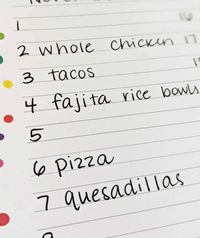 1 16
2 whole chicken 17
3 tacos
4 fajita rice bowls
5
6 pizza
7 quesadillas